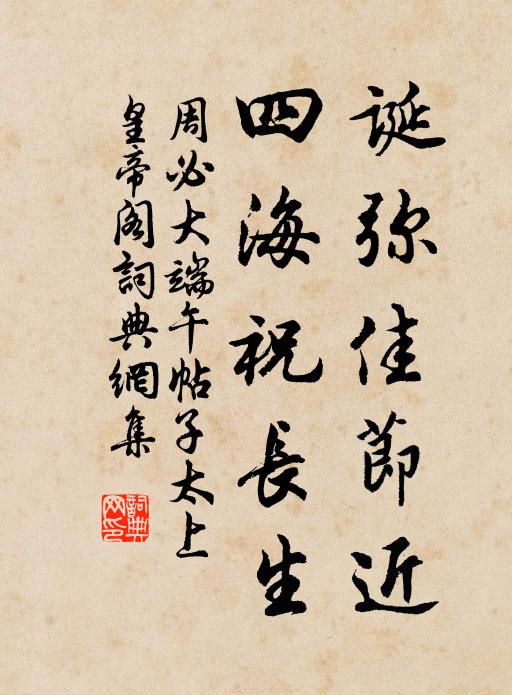 誕弥佳節近
四海祝長生
周必大端午帖子太上
皇帝阁詞典網集
詞典网印